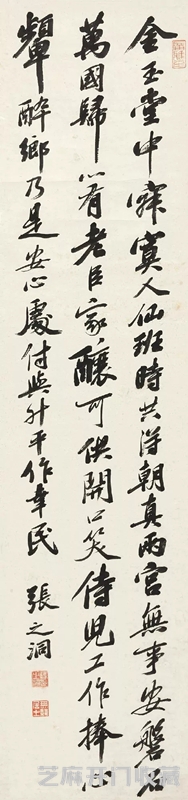 金玉堂中寂寞人仙班時共得朝真兩宮無事安磐石
萬國歸心有老臣家釀可供開口笑侍兒工作捧心
顰醉鄉乃是安心處付與升平作幸民
張之洞
芝麻开门收藏